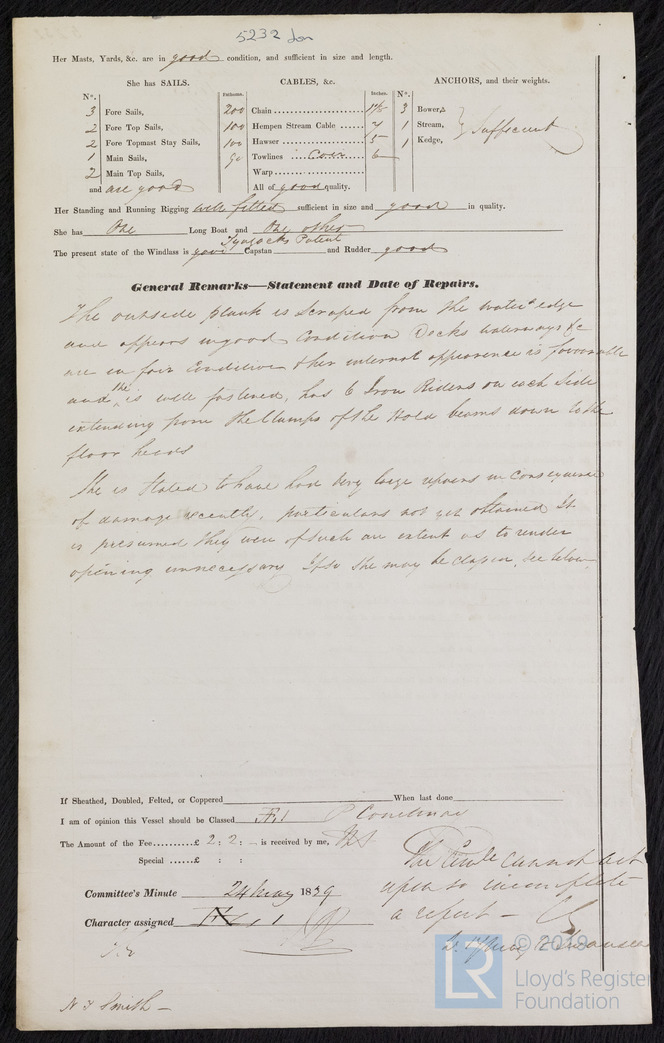 5232 Lon
Her Masts, Yards, &c. are in good condition, and sufficient in size and length.
She has SAILS.
CABLES, &c.
ANCHORS, and their weights.
N°.
Fathoms.
Inches.
N°.
3 Fore Sails,
200 Chain
3 Bower,
2 Fore Top Sails,
100 Hempen Stream Cable 7
1 Stream,
Sufficient
2 Fore Topmast Stay Sails,
100 Hawser 5
1 Kedge,
1 Main Sails,
90 Towlines 6
2 Main Top Sails,
Warp
and are good
All of good quality.
Her Standing and Running Rigging well fitted sufficient in size and good in quality.
She has One Long Boat and one other
Tyzacks Patent
The present state of the Windlass is good Capstan and Rudder good
General Remarks—Statement and Date of Repairs.
The outside plank is scraped from the waters edge
and appears in good condition Decks waterways &c
are in fair condition & her internal appearance is favorable
and she is well fastened, has 6 Iron Riders on each side
extending from the Clamps of the Hold beams down to the
floor heads
She is stated to have had very large repairs in consequence
of damage recently, particulars not yet obtained It
is presumed they were of such an extent as to render
opening unnecessary If so she may be classed, see below
If Sheathed, Doubled, Felted, or Coppered When last done
I am of opinion this Vessel should be Classed Æ 1
The Amount of the Fee £ 2 : 2 : - is received by me,
Special £ : :
The Comte cannot act
upon so incomplete
a report -
Committee's Minute 24 May 1839
Character assigned Æ 1
N T Smith
LR
© 2019
Lloyd's Register
Foundation